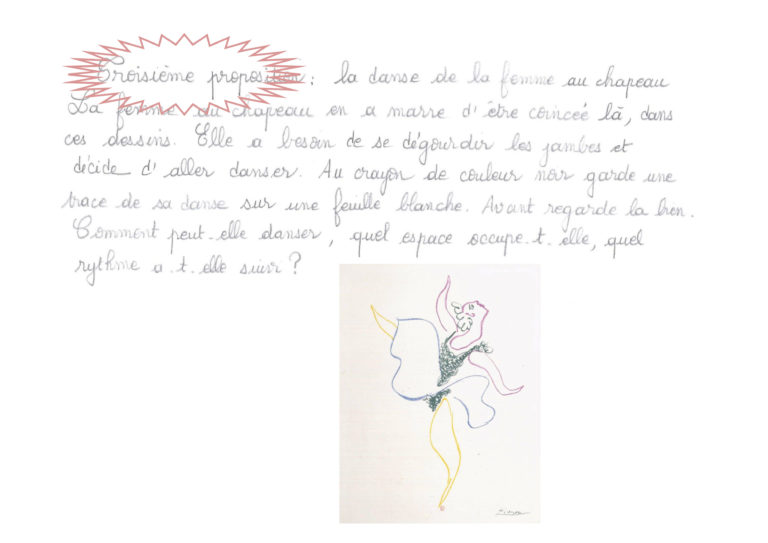 Troisième proposition : la danse de la femme au chapeau
La femme au chapeau en a marre d'être coincéé là, dans
ces dessins. Elle a besoin de se dégourdir les jambes et
décide d'aller danser. Au crayon de couleur noir garde une
trace de sa danse sur une feuille blanche. Avant regarde la bien.
Comment peut-elle danser, quel espace occupe-t-elle, quel
rythme a-t-elle suivi ?
Picasso